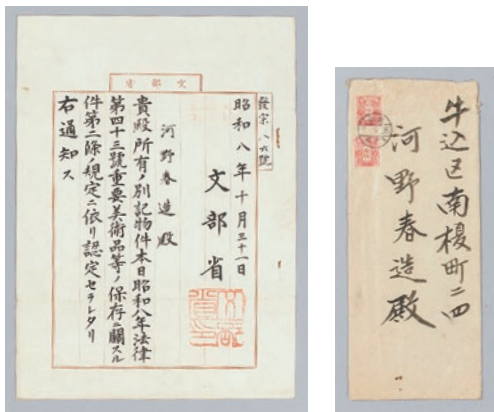 文部省
發宗八六號
昭和八年十月三十一日
文部省
文部省印
河野春造殿
貴殿所有ノ別記物件本日昭和八年法律
第四十三號重要美術品等ノ保存ニ關スル
件第二條ノ規定ニ依リ認定セラレタリ
右通知ス
牛込区南榎町二四
河野春造殿